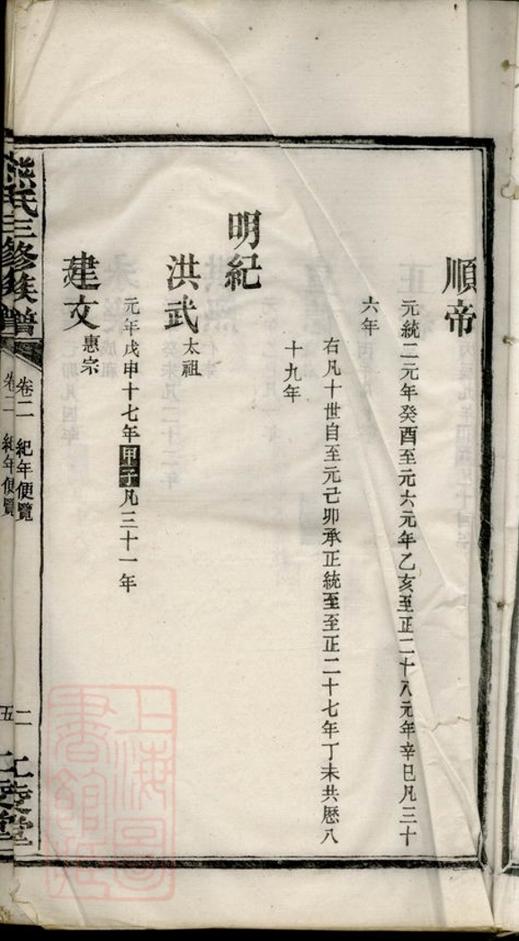 順帝
元統二元年癸酉至元六元年乙亥至正二十八元年辛巳凡三十
六年
右凡十世自至元己卯承正統至至正二十七年丁未共歷八
十九年
明紀
洪武太祖
元年戊申十七年甲子凡三十一年
建文惠宗
熊氏三修族譜
卷二 紀年便覽
卷二 紀年便覽
五
二
江陵堂
上海圖書館藏